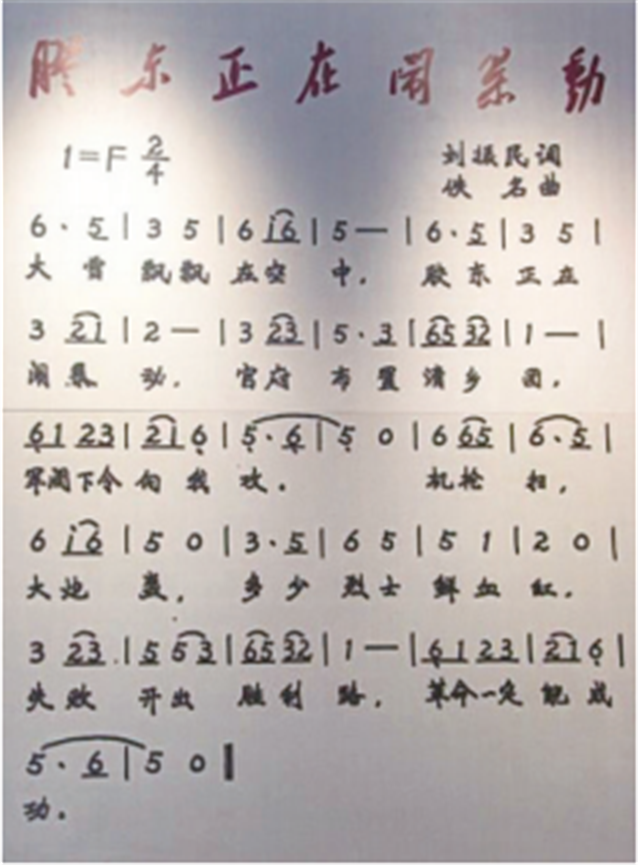 胶东正在闹暴動
1=F 2/4
刘摄民词
佚名曲
6· 5 | 3 5 | 6 i6 | 5 — | 6· 5 | 3 5 |
大雪 飘飘 在空 中， 胶东 正在
3 21 | 2 — | 3 23 | 5· 3 | 65 32 | 1 — |
闹暴 动。 官府 布置 清乡 团，
61 23 | 21 6 | 5· 6 | 5 0 | 6 65 | 6· 5 |
军阀下令 向我 攻。 机枪 扫，
6 i6 | 5 0 | 3· 5 | 6 5 | 5 1 | 2 0 |
大炮 轰， 多少 烈士 鲜血 红。
3 23 | 5 53 | 65 32 | 1 — | 61 23 | 21 6 |
失败 开出 胜利 路， 革命一定 能成
5· 6 | 5 0 ‖
功。